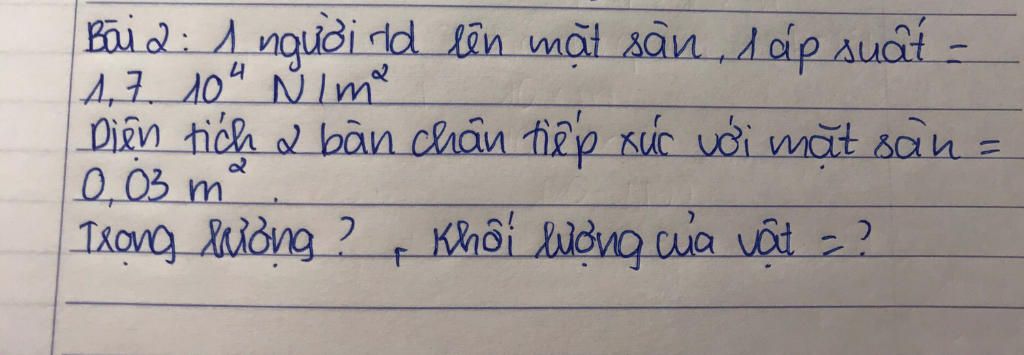 Bài 2: 1 người td lên mặt sàn, 1 áp suất =
1,7. 10⁴ N/m²
Diện tích 2 bàn chân tiếp xúc với mặt sàn =
0,03 m².
Trọng lượng?, Khối lượng của vật = ?